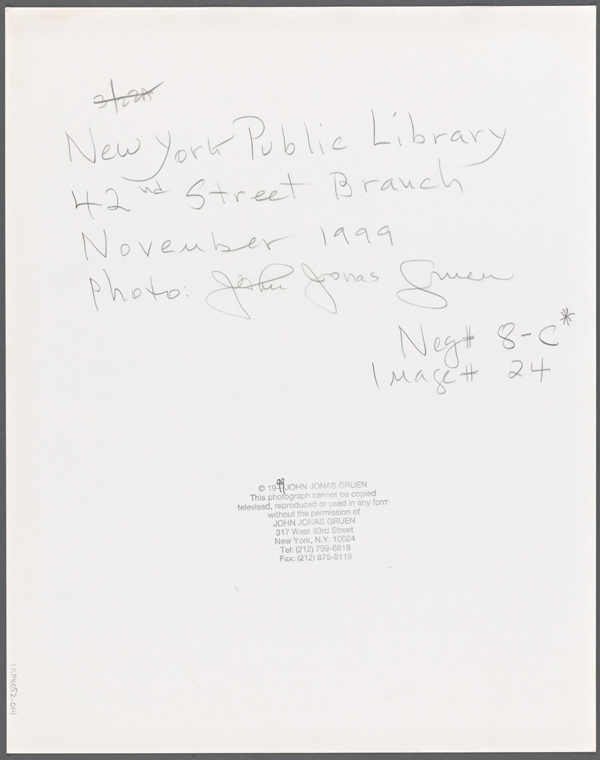 New York Public Library
42nd Street Branch
November 1999
Photo: John Jonas Gruen
Neg# 8-C*
Image# 24
© 1999 JOHN JONAS GRUEN
This photograph cannot be copied
televised, reproduced or used in any form
without the permission of
JOHN JONAS GRUEN
317 West 33rd Street
New York, N.Y. 10024
Tel: (212) 799-6818
Fax: (212) 875-8119